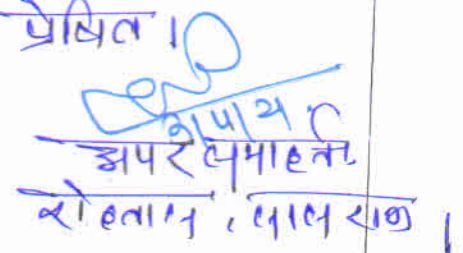 प्रेषित ।
अपर समाहर्ता
रोहतास, सासाराम ।